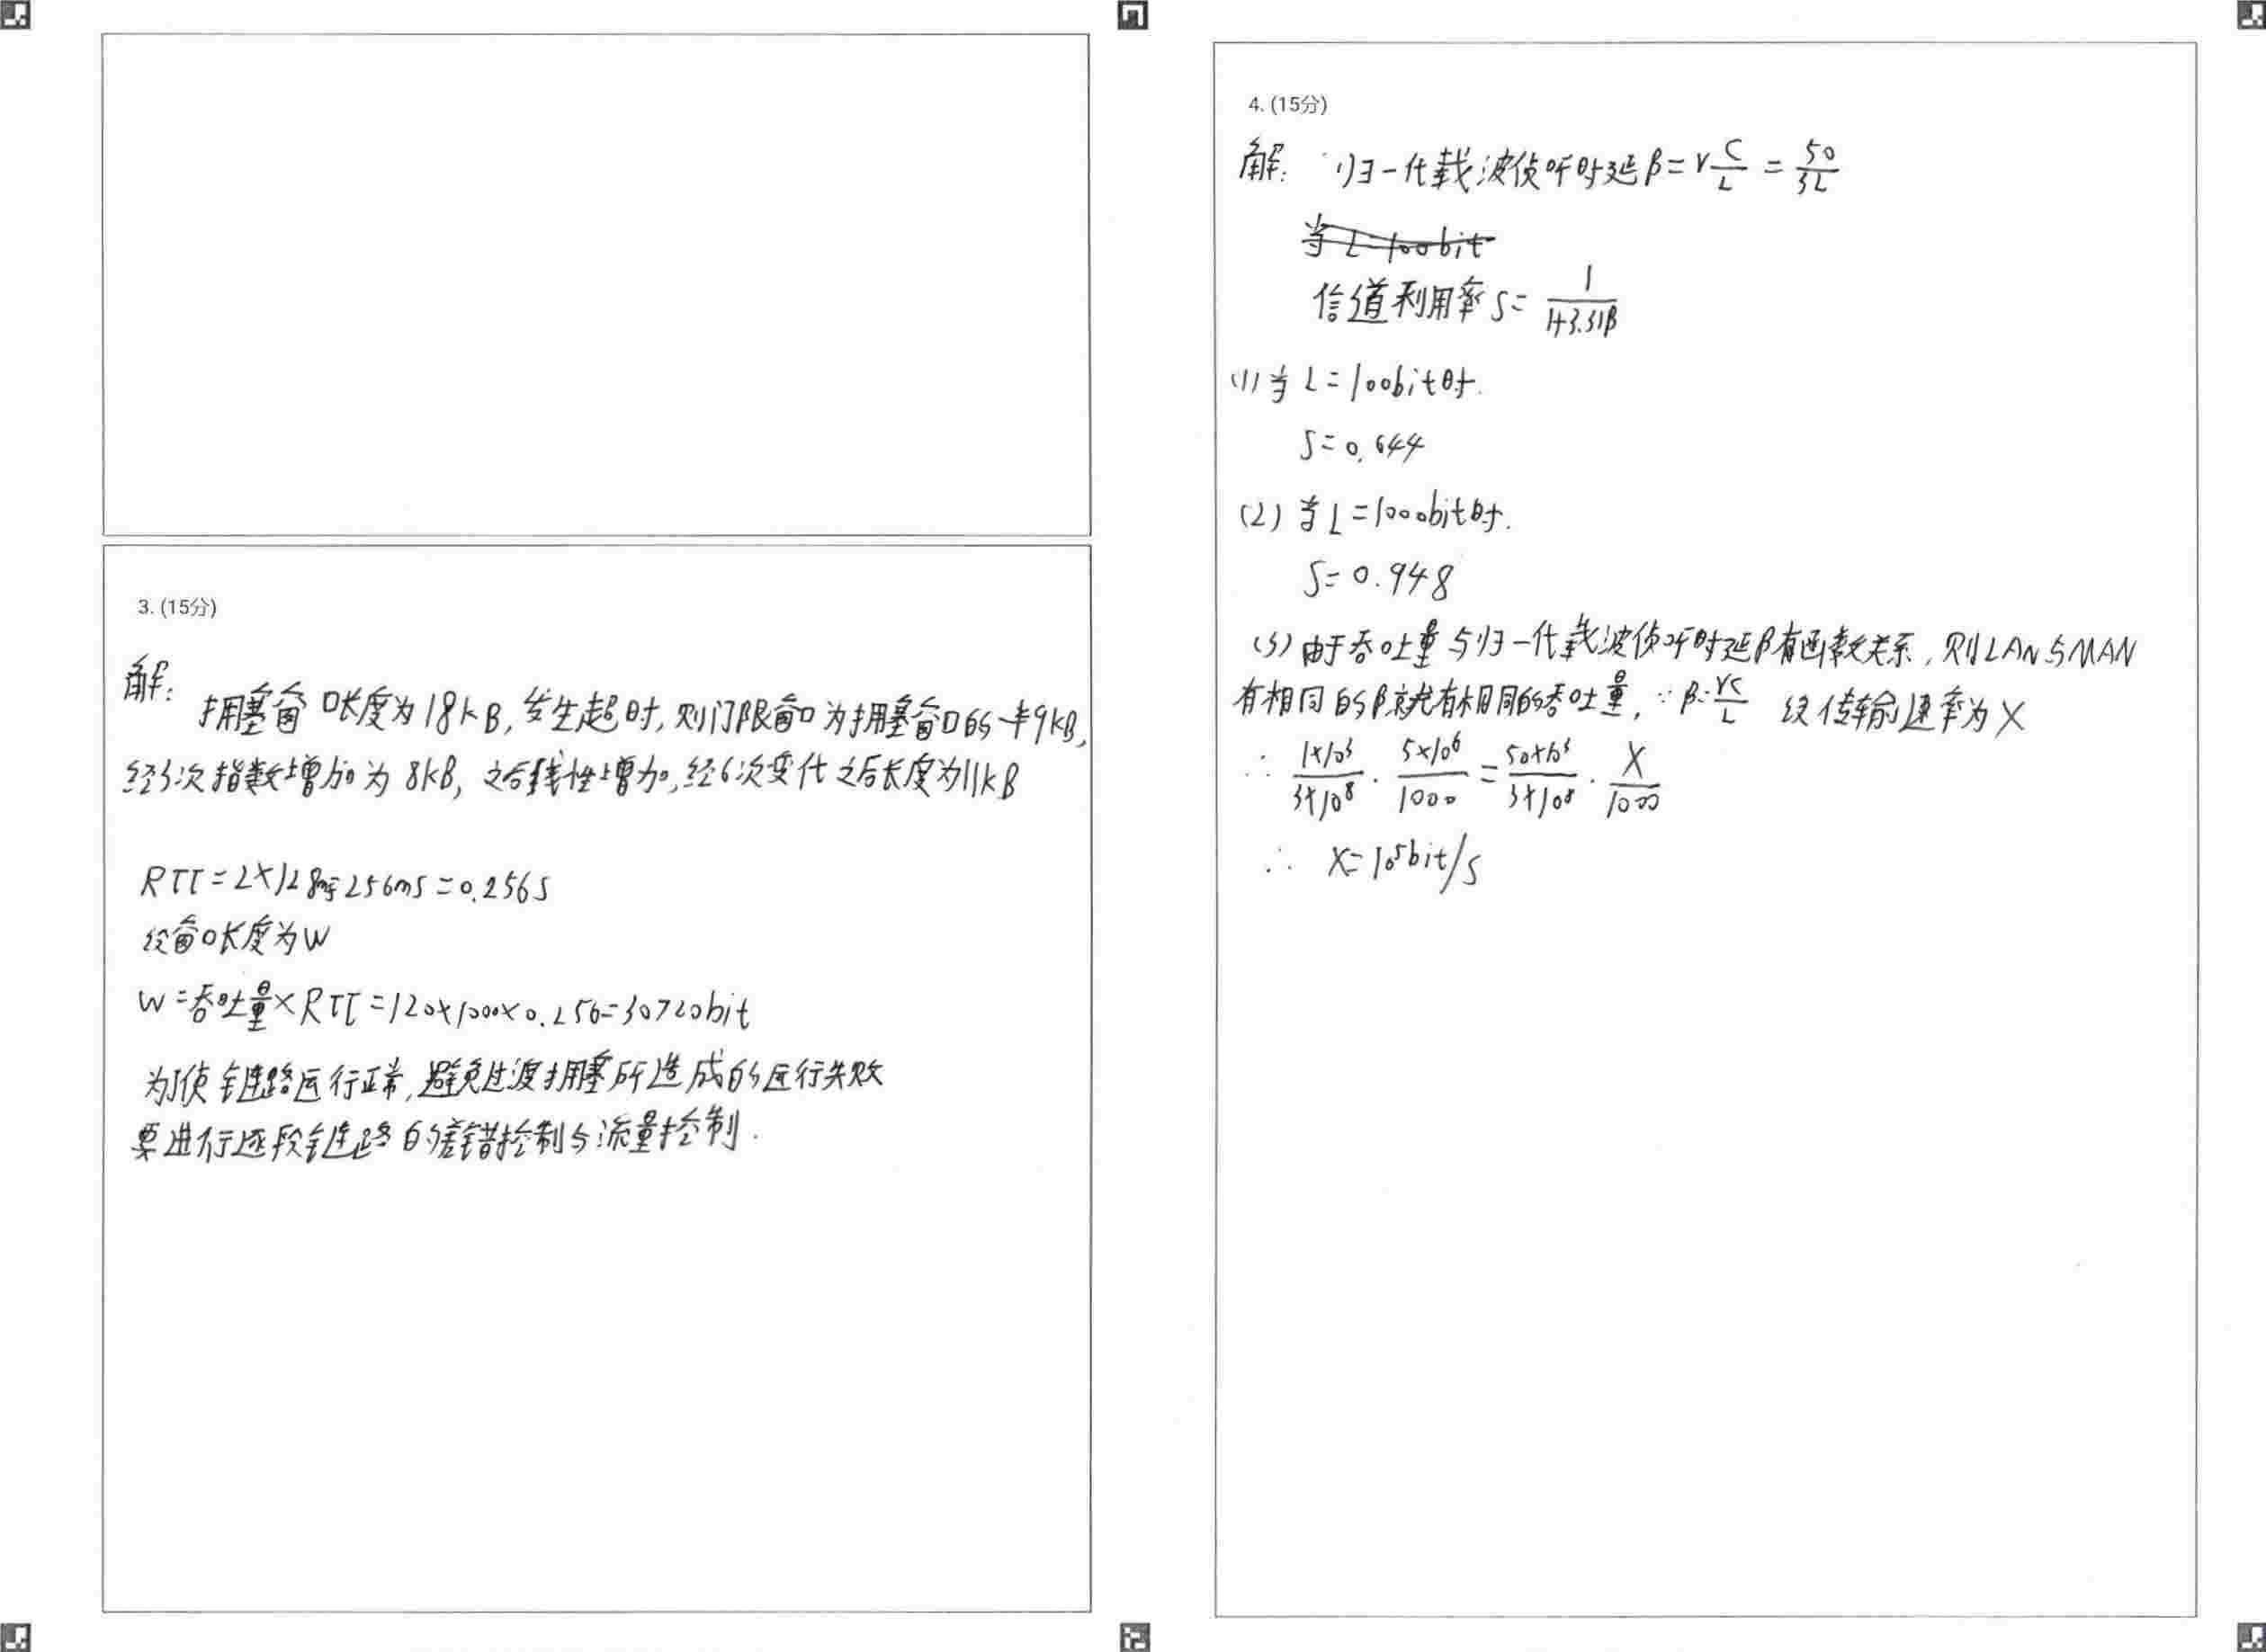 3. (15分)
解: 拥塞窗口长度为18kB,发生超时,则门限窗口为拥塞窗口的一半9kB,
经3次指数增加为8kB,之后线性增加,经6次变化之后长度为11kB
RTT=2×128ms=256ms=0.256s
设窗口长度为W
W=吞吐量×RTT=120×1000×0.256=30720bit
为了使链路运行正常,避免过渡拥塞所造成的运行失败
要进行逐段链路的差错控制与流量控制.
4. (15分)
解: 归一化载波侦听时延β=γC/L=50/3L
信道利用率S=1/(1+3.31β)
(1) 当L=100bit时.
S=0.644
(2) 当L=1000bit时.
S=0.948
(3) 由于吞吐量与归一化载波侦听时延β有函数关系,则LAN与MAN
有相同的β就有相同的吞吐量,∵β=γC/L 设传输速率为X
∴ 1×10³/3×10⁸ · 5×10⁶/1000 = 50×10³/3×10⁸ · X/1000
∴ X=10⁵bit/s